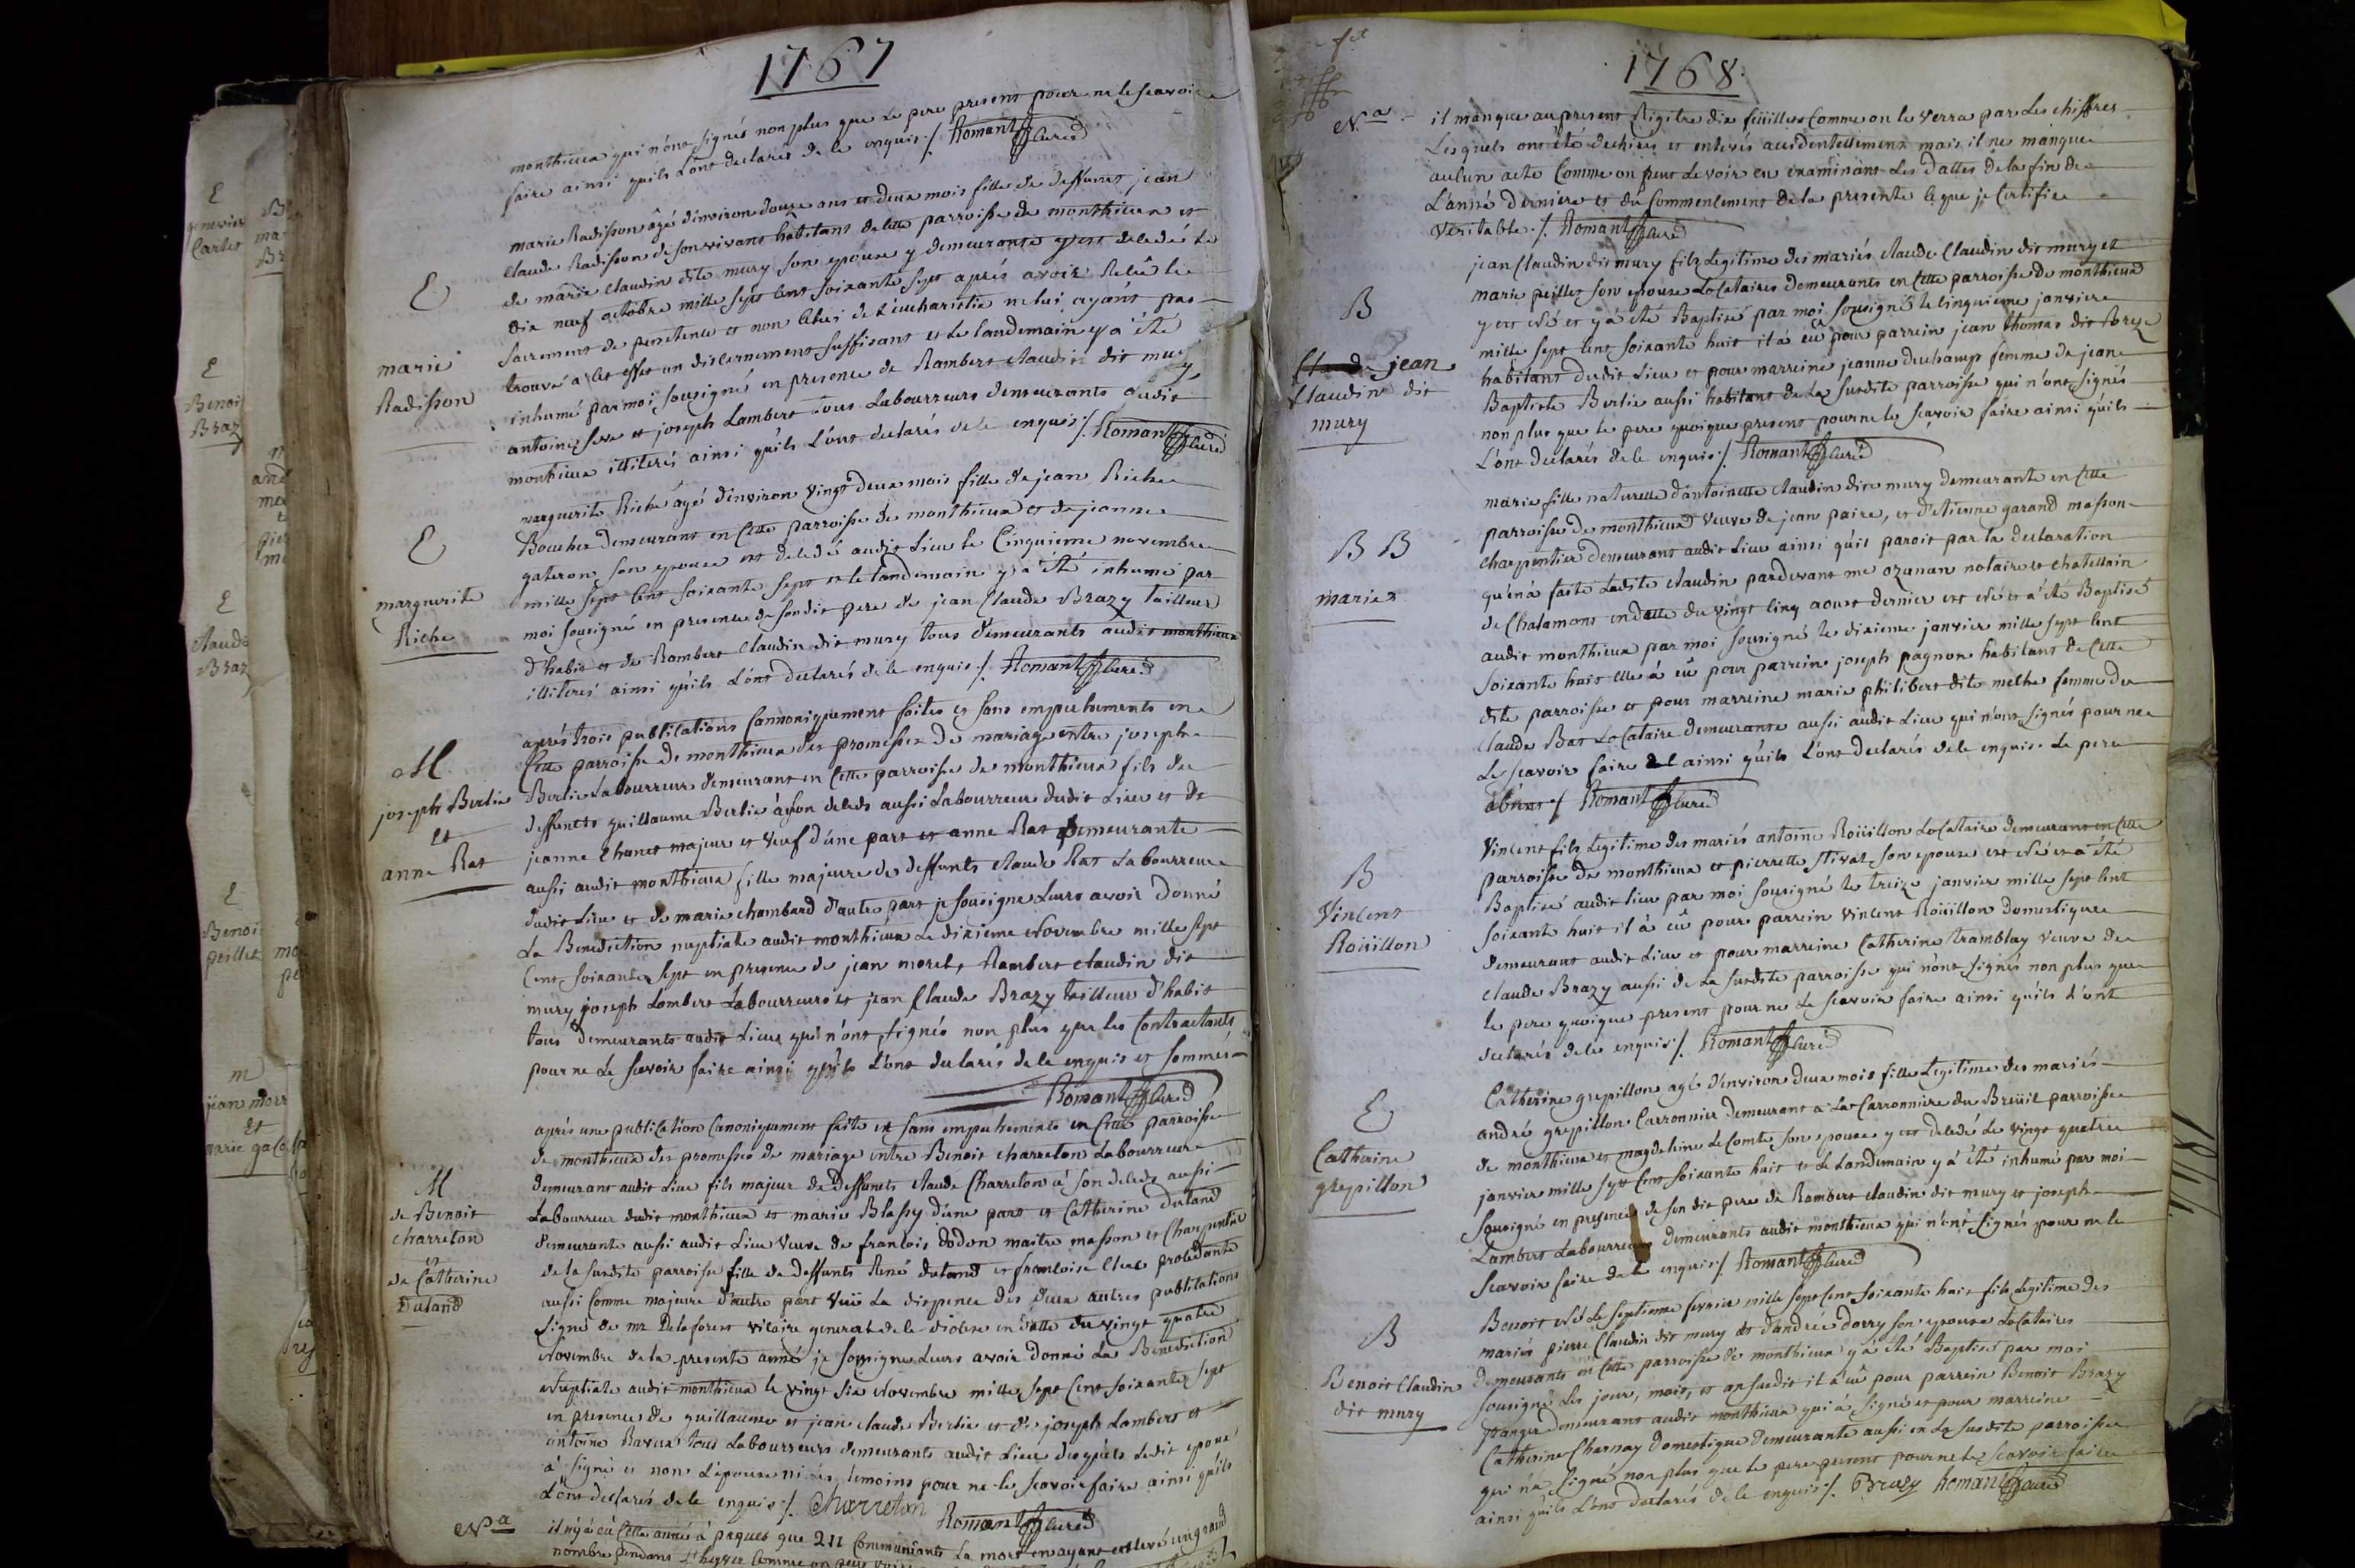 1767
monthieux qui n'ont signés non plus que le pere present pour ne le scavoir
faire ainsi qu'ils L'ont declarés de ce enquis ./. Romant Curé
E
marie
Radisson
marie Radisson âgé d'environ douze ans et deux mois fille de deffunts jean
Claude Radisson de son vivant habitant de cette parroisse de monthieux et
de marie Claudin dite mury son epouse y demeurante y est decedé le
dix neuf octobre mille sept cent soixante sept aprés avoir Reçû le
sacrement de penitence et non celui de L'eucharistie ne lui ayant pas
trouvé a cet effet un discernement suffisant et le landemain y a été
inhumé par moi sousigné en presence de Rambert Claudin dit mury
antoine seve et joseph Lambert tous Labourreurs demeurants audit
monthieux illiterés ainsi qu'ils L'ont declarés de ce enquis ./. Romant Curé
E
marguerite
Riche
marguerite Riche âgé d'environ vingt deux mois fille de jean Riche
Boucher demeurant en cette parroisse de monthieux et de jeanne
gateron son epouse est decedé audit Lieu le Cinquieme novembre
mille sept cent soixante sept et le landemain y a été inhumé par
moi sousigné en presence de son dit pere de jean Claude Brazy tailleur
d'habit et de Rambert Claudin dit mury tous demeurants audit monthieux
illiterés ainsi qu'ils L'ont declarés de ce enquis ./. Romant Curé
M
joseph Berlie
et
anne Rat
aprés trois publications Cannoniquement faites et sans empechements en
Cette parroisse de monthieux des promesses de mariage entre joseph
Berlie Labourreur demeurant en Cette parroisse de monthieux fils de
deffunts guillaume Berlie à son deceds aussi Labourreur dudit Lieu et de
jeanne Chanet majeur et veuf d'une part et anne Rat demeurante
aussi audit monthieux fille majeure de deffunts Claude Rat Labourreur
dudit Lieu et de marie Chambard d'autre part je sousigne Leurs avoir donné
La Benediction nuptiale audit monthieux Le dixieme Novembre mille sept
Cent soixante sept en presence de jean morel, Rambert Claudin dit
mury joseph Lambert Labourreurs et jean Claude Brazy tailleur d'habit
tous demeurants audit Lieu qui n'ont signés non plus que les Contractants
pour ne Le scavoir faire ainsi qu'ils L'ont declarés de ce enquis et sommés
Romant Curé
M
de Benoit
Charreton
et
de Catherine
Duland
aprés une publication Canoniquement faite et sans empechements en Cette parroisse
de monthieux des promesses de mariage entre Benoit Charreton Labourreur
demeurant audit Lieu fils majeur de deffunts Claude Charreton à son deceds aussi
Labourreur dudit monthieux et marie Blassy d'une part et Catherine duland
demeurante aussi audit Lieu Veuve de francois dodon maitre masson et Charpentier
de la susdite parroisse fille de deffunts René duland et francoise procedante
aussi Comme majeure d'autre part Vuü La dispence des deux autres publications
signé de mr Delaforest vicaire general de ce diocese en datte du vingt quatre
Novembre de la presente année je sousigne Leurs avoir donné La Benediction
Nuptiale audit monthieux le vingt six Novembre mille sept Cent soixante sept
en presence de guillaume et jean Claude Berlie et de joseph Lambert et
antoine Baveux tous Labourreurs demeurants audit Lieu desquels Ledit epoux
à signé et non L'epouse ni Les temoins pour ne le scavoir faire ainsi qu'ils
L'ont declarés de ce enquis ./. Charreton Romant Curé
Na
il n'y à eû Cette année à paques que 211 Communiants La mort en ayant enlevé un grand
nombre pendant L'hyver Comme on peut voir
1768.
Na
il manque au present Rigitre dix feüilles Comme on le verra par Les chiffres
Lesquels ont été dechirés et enlevés accidentellement mais il ne manque
aucun acte Comme on peut Le voir en examinant Les dattes de la fin de
L'anné derniere et du Commencement de la presente Ce que je Certifie
Veritable ./. Romant Curé
B
jean
Claudin dit
mury
jean Claudin dit mury fils Legitime des mariés Claude Claudin dit mury et
marie peillet son epouse Locataires demeurants en Cette parroisse de monthieux
y est Né et y à été Baptisé par moi sousigné le Cinquieme janvier
mille sept Cent soixante huit il à eû pour parrein jean thomas dit Broze
habitant dudit Lieu et pour marreine jeanne duchamp femme de jean
Baptiste Berlie aussi habitant de La susdite parroisse qui n'ont signés
non plus que le pere quoique present pour ne le scavoir faire ainsi qu'ils
L'ont declarés de ce enquis ./. Romant Curé
B B
marie
marie fille naturelle d'antoinette Claudin dite mury demeurante en Cette
parroisse de monthieux Veuve de jean paire, et d'Etienne garand masson
charpentier demeurant audit Lieu ainsi qu'il paroit par la declaration
qu'en à faite Ladite Claudin pardevant me ozanan notaire et chatellain
de Chalamont en datte du vingt Cinq aoust dernier est Né et à été Baptisé
audit monthieux par moi sousigné le dixieme janvier mille sept Cent
soixante huit elle à eû pour parrein joseph pagnon habitant de Cette
dite parroisse et pour marreine marie philibert dite melhe femme de
Claude Bas Locataire demeurante aussi audit Lieu qui n'ont signés pour ne
Le scavoir faire ainsi qu'ils L'ont declarés de ce enquis. Le pere
absent ./. Romant Curé
B
Vincent
Roüillon
Vincent fils Legitime des mariés antoine Roüillon Locataire demeurant en Cette
parroisse de monthieux et pierrette Stival son epouse est Né et à été
Baptisé audit Lieu par moi sousigné le treize janvier mille sept Cent
soixante huit il à eû pour parrein Vincent Roüillon Domestique
demeurant audit Lieu et pour marreine Catherine tramblay veuve de
Claude Brazy aussi de La susdite parroisse qui n'ont signés non plus que
le pere quoique present pour ne Le scavoir faire ainsi qu'ils L'ont
declarés de ce enquis ./. Romant Curé
E
Catherine
grepillon
Catherine grepillon agé d'environ deux mois fille Legitime des mariés
andré grepillon Carronnier demeurant a La Carronniere du Breüil parroisse
de monthieux et magdeleine Le Comte son epouse y est decedé Le vingt quatre
janvier mille sept Cent soixante huit et Le Landemain y à été inhumé par moi
sousigné en presence de son dit pere de Rambert Claudin dit mury et joseph
Lambert Labourreurs demeurants audit monthieux qui n'ont signés pour ne le
scavoir faire de ce enquis ./. Romant Curé
B
Benoit Claudin
dit mury
Benoit Né Le septieme fevrier mille sept Cent soixante huit fils Legitime des
mariés pierre Claudin dit mury et d'andrée dorry son epouse Locataires
demeurants en Cette parroisse de monthieux y à été Baptisé par moi
sousigné Les jour, mois, et an susdit il à eû pour parrein Benoit Brazy
granger demeurant audit monthieux qui à signé et pour marreine
Catherine Charnay Domestique demeurante aussi en La susdite parroisse
qui n'a signé non plus que le pere present pour ne le scavoir faire
ainsi qu'ils L'ont declarés de ce enquis ./. Brazy Romant Curé